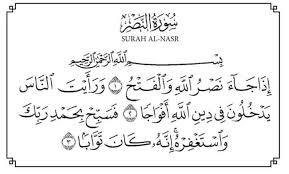 سُورَةُ النَّصْرِ
SURAH AL-NASR
بِسْمِ اللَّهِ الرَّحْمَٰنِ الرَّحِيمِ
إِذَا جَآءَ نَصْرُ اللَّهِ وَالْفَتْحُ ۝١ وَرَأَيْتَ النَّاسَ
يَدْخُلُونَ فِي دِينِ اللَّهِ أَفْوَاجًا ۝٢ فَسَبِّحْ بِحَمْدِ رَبِّكَ
وَاسْتَغْفِرْهُ ۚ إِنَّهُ كَانَ تَوَّابًا ۝٣